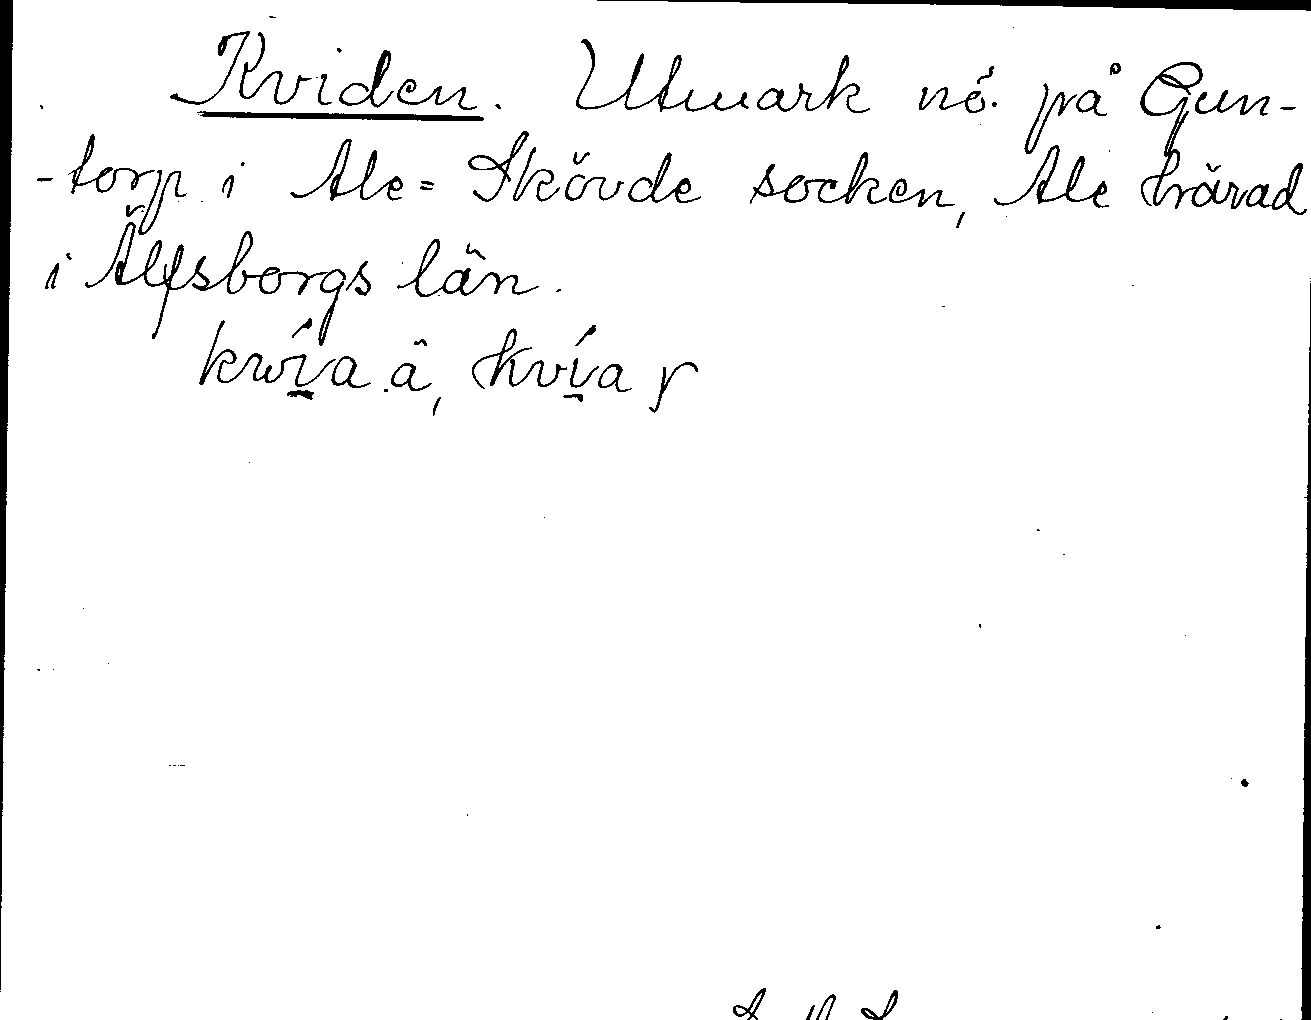 Kviden. Utmark nö. på Gun-
-torp i Ale=Skövde socken, Ale härad
i Älfsborgs län.
kwí̱a â, kví̱a